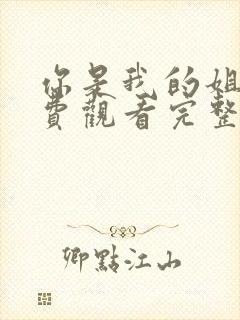 你是我的姐
費觀看完整
卿點江山